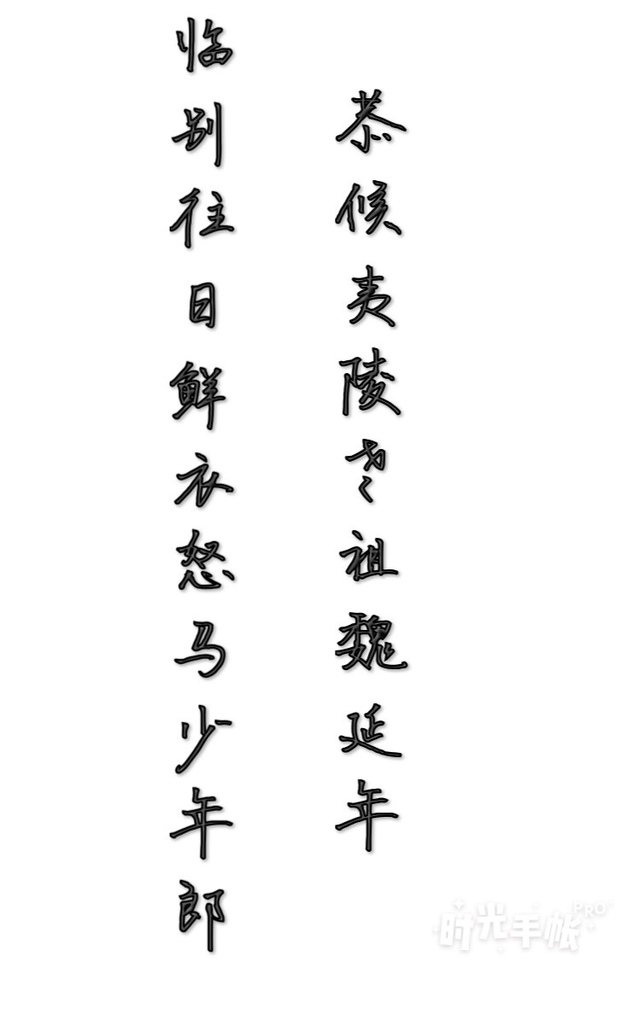 恭候夷陵老祖魏延年
临别往日鲜衣怒马少年郎
时光手帐PRO